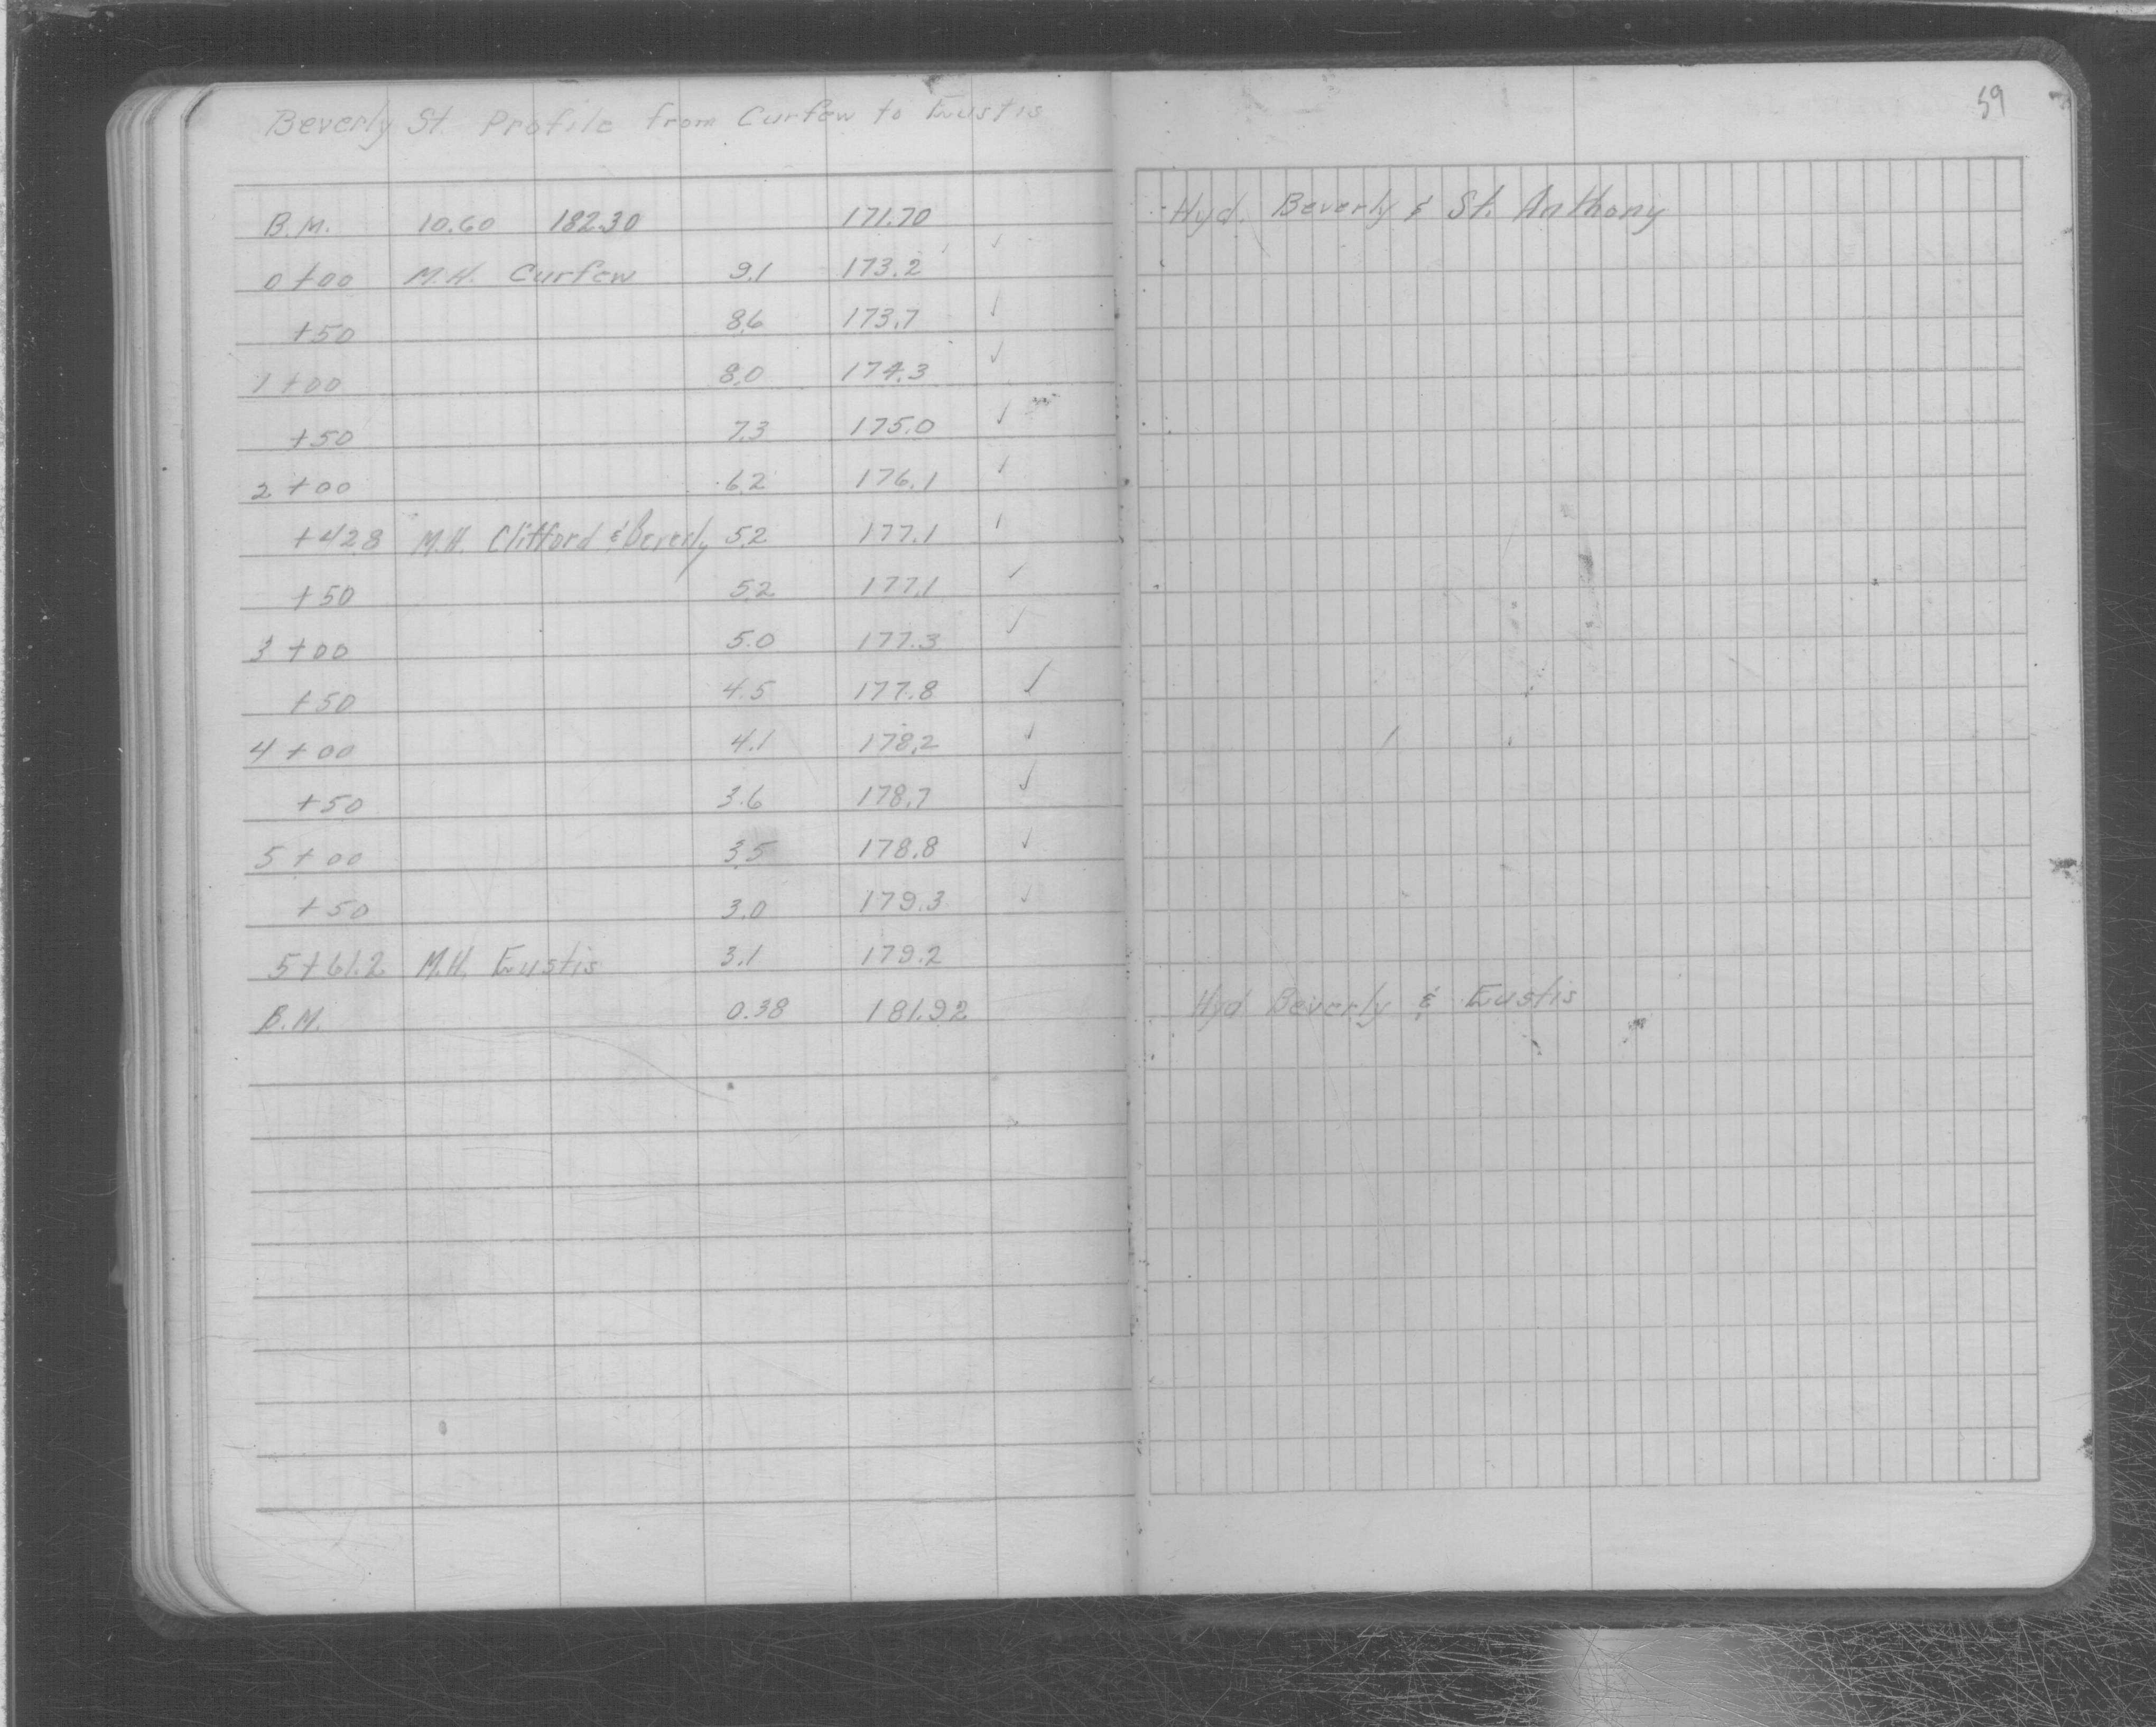 Beverly St. Profile from Curfew to Eustis
59
B.M. 10.60 182.30 171.70 Hyd. Beverly & St. Anthony
0+00 M.H. Curfew 9.1 173.2 ✓
+50 8.6 173.7 ✓
1+00 8.0 174.3 ✓
+50 7.3 175.0 ✓
2+00 6.2 176.1 ✓
+42.8 M.H. Clifford & Beverly 5.2 177.1 ✓
+50 5.2 177.1 ✓
3+00 5.0 177.3 ✓
+50 4.5 177.8 ✓
4+00 4.1 178.2 ✓
+50 3.6 178.7 ✓
5+00 3.5 178.8 ✓
+50 3.0 179.3 ✓
5+61.2 M.H. Eustis 3.1 179.2
B.M. 0.38 181.92 Hyd Beverly & Eustis